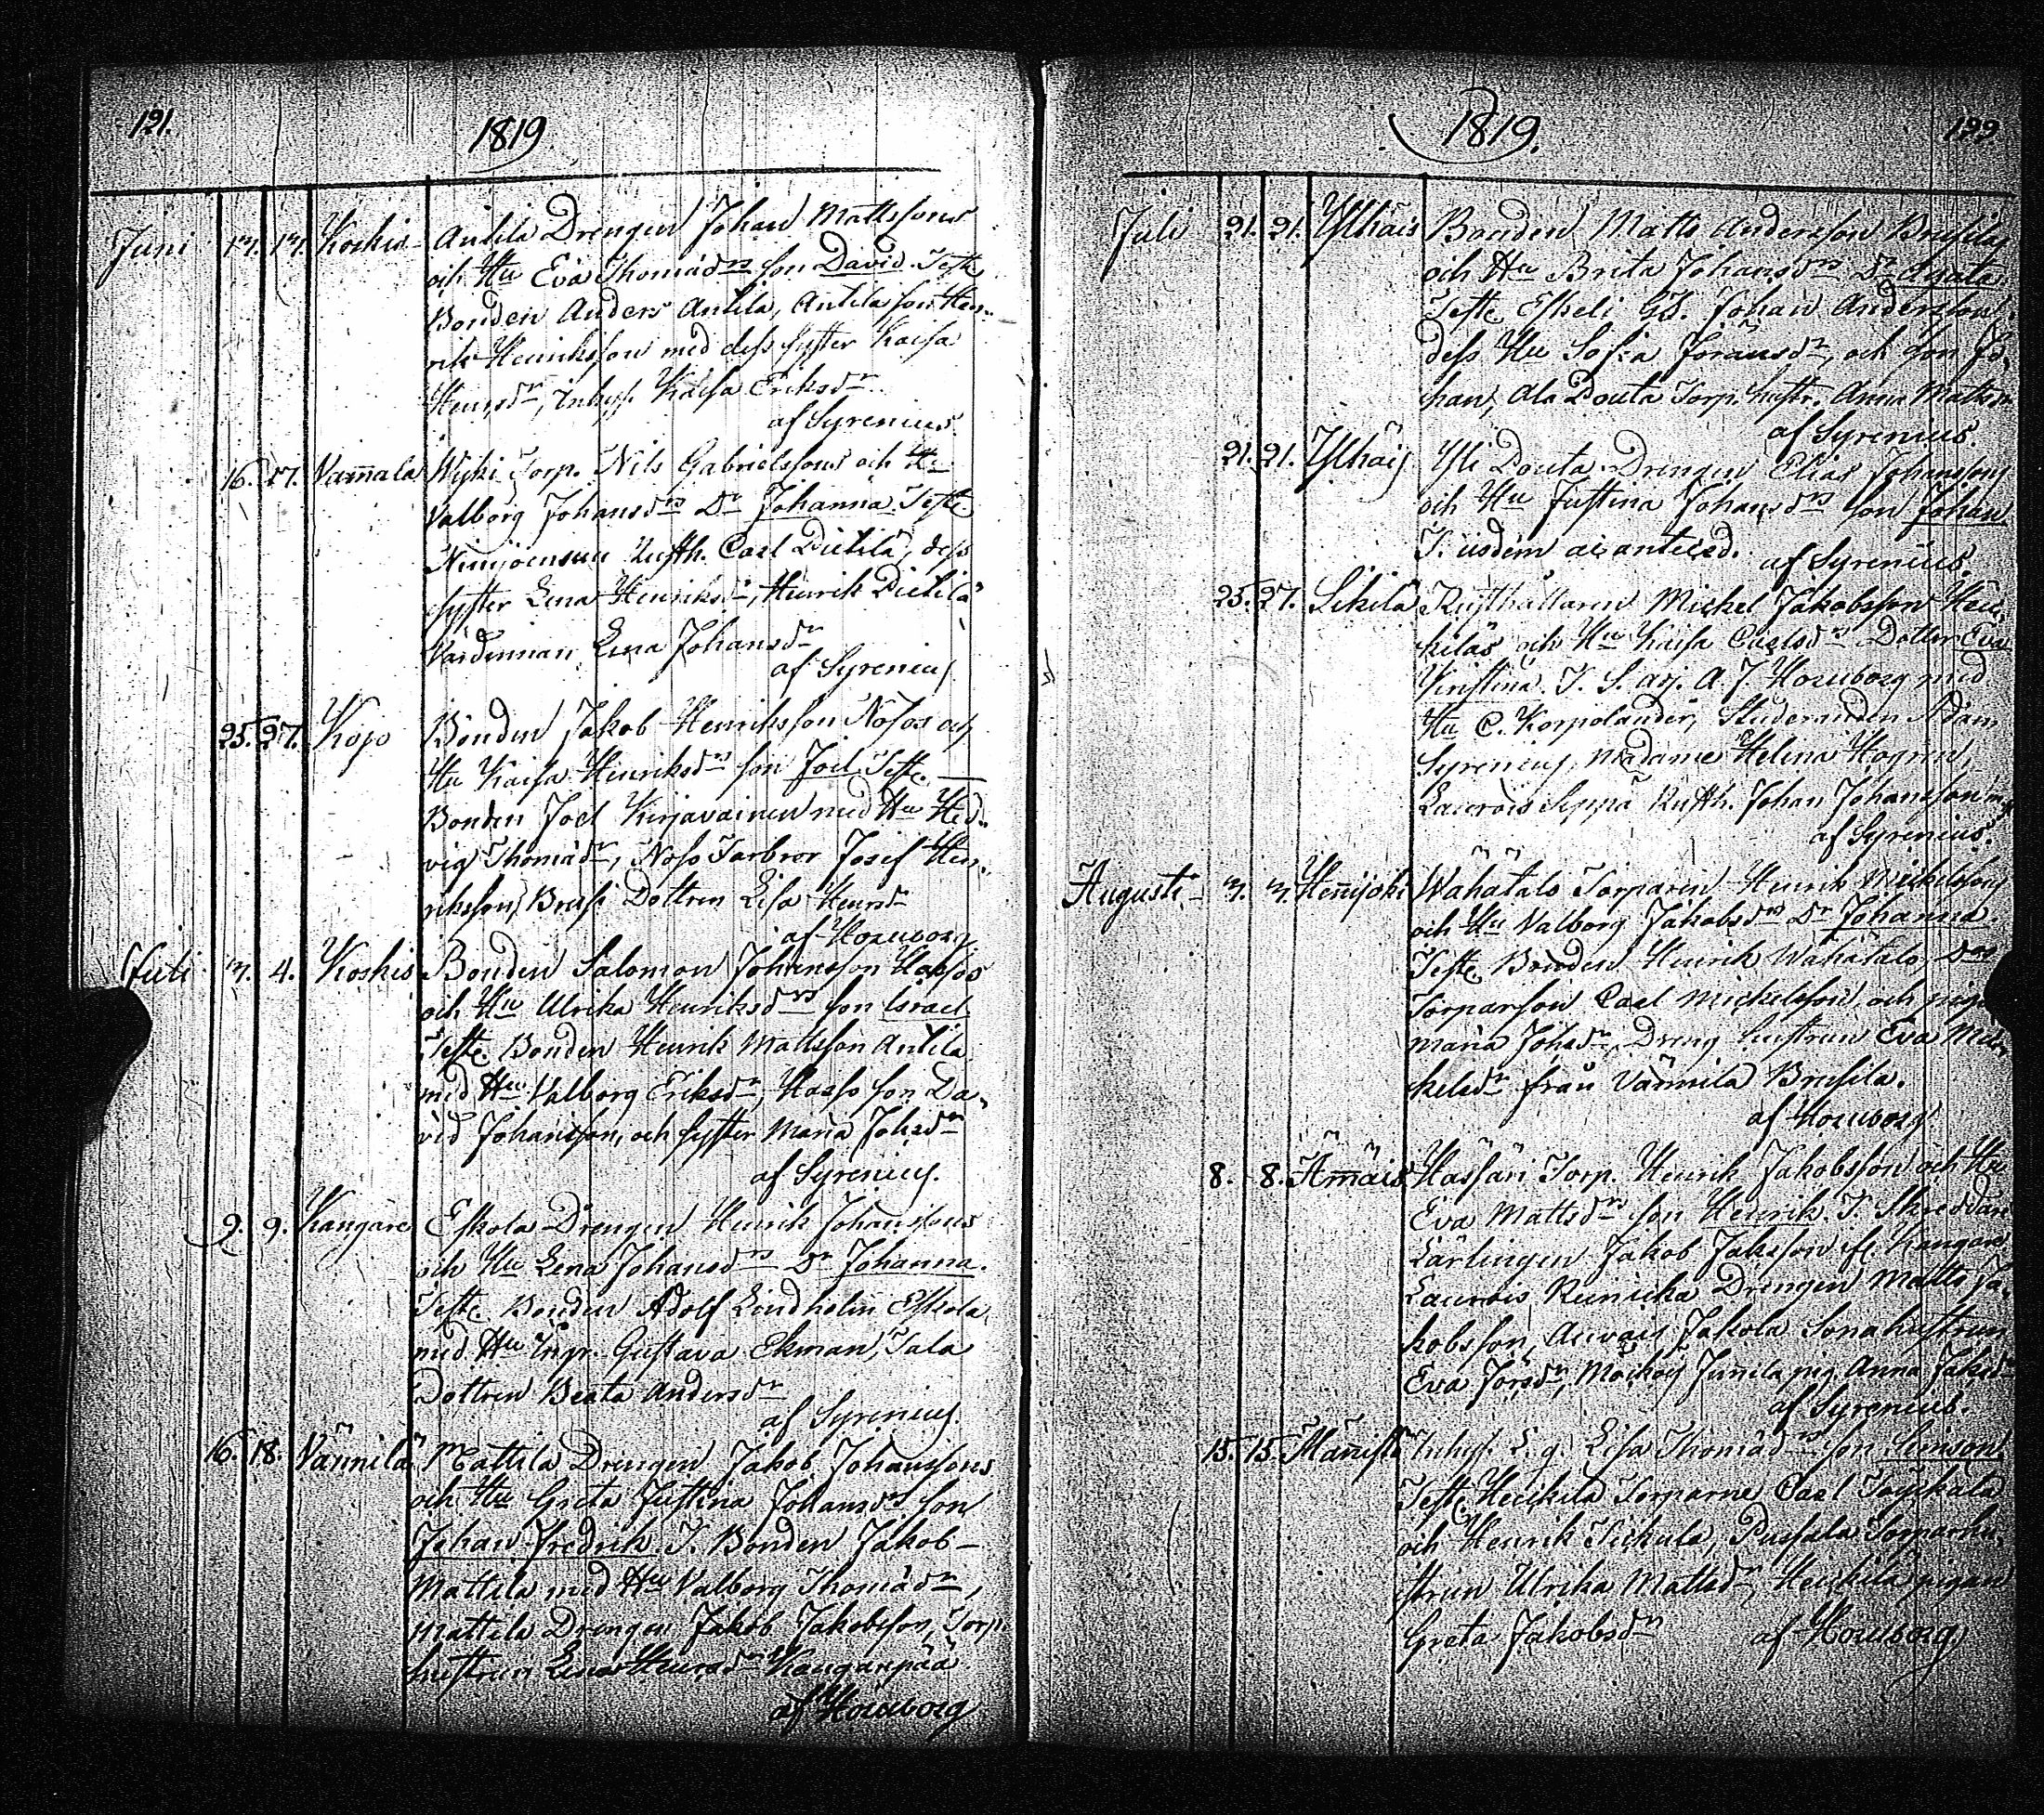 121.
1819
Juni 13. 13. Koskis Antila Drengen Johan Mattssons
och Hu Eva Thomædrs son David. Teste
Bonden Anders Antila, Antila son Hen-
rik Henriksson med dess syster Kaisa
Henrsdr, Inhys. Kaisa Eriksdr
af Syrenius.
16. 17. Vam̄ala Wyki Torp. Nils Gabrielssons och Hu
Valborg Johansdrs Dr Johanna. Teste
Rusth. Carl Dietilä, dess
syster Lena Henriksdr, Henrik Dietilä
Lena Johansdr
af Syrenius
25. 27. Kojo Bonden Jakob Henriksson Nosos och
Hu Kaisa Henriksdrs son Joel. Teste
Bonden Joel Kirjavainen med Hu Hed-
vig Thomædr, Noso Farbror Josef Hen-
riksson, Brusi Dottren Lisa Henrsdr
af Horuborg
Juli 3. 4. Koskis Bonden Salomon Johansson Hassos
och Hu Ulrika Henriksdrs son Israel
Teste. Bonden Henrik Mattsson Antila
med Hu Valborg Eriksdr, Hasso son Da-
vid Johansson, och syster Maria Johsdr
af Syrenius.
9. 9. Kangare Eskola Drengen Henrik Johanssons
och Hu Lena Johansdrs Dr Johanna.
Teste. Bonden Adolf Lindholm Eskola
med Hu Ingr. Gustava Ekman, Tala
Dottren Beata Andersdr
af Syrenius.
16. 18. Vännilä Mattila Drengen Jakob Johanssons
och Hu Greta Justina Johansdrs son
Johan Fredrik T. Bonden Jakob
Mattila med Hu Valborg Thomædr,
Mattila Drengen Jakob Jakobsson, Torp.
hustrun Lena Henrsdr Kangarpää
af Horuborg
1819.
122.
Juli 21. 21. Ylhäis Bonden Matts Andersson Brusilas
och Hu Brita Johansdrs Dr Agata.
Teste Eskeli GB. Johan Andersson
dess Hu Sofia Göransdr, och son Jo-
han, Ala Douta Torp. hustr. Anna Mattsdr
af Syrenius.
21. 21. Ylhäis Yli Douta Drengen Elias Johanssons
och Hu Justina Johansdrs son Johan.
T. iisdem ac anteced. af Syrenius.
25. 27. Sikilä Rusthållaren Mickel Jakobsson Hei-
kiläs och Hu Kaisa Carlsdrs Dotter Eva
Kristina. T. S. adj. A. J Horuborg med
Hu C. Korpolander, Studeranden Adam
Syrenius, Madame Helena Hogren,
Laurois Seppä Rusth. Johan Johansson
af Syrenius.
Augusti 3. 3. Hen̄ijoki Wähätalo Torparen Henrik Mickelssons
och Hu Valborg Jakobsdrs Dr Johanna
Teste. Bonden Henrik Wähätalo,
Torparson Carl Mickelsson och pigan
Maria Johsdr, Dreng hustrun Eva Mic-
kelsdr från Vännila Brusila.
af Horuborg
8. 8. Hassari Torp. Henrik Jakobsson och Hu
Eva Mattsdrs son Henrik. T. Skreddare
Lärlingen Jakob Jaksson
Laurois Reinika Drengen Matts Ja-
kobsson, Auvais Jakola Sonahustrun
Eva Jörsdr, Junila pig. Anna Jaksdr
af Syrenius.
15. 15. Inhys. Lisa Thomædrs son Simson
Teste. Heickilä Torparne Carl
och Henrik Sickula, Pussala Torparhu-
strun Ulrika Mattsdr, Heickilä pigan
Greta Jakobsdr af Horuborg.